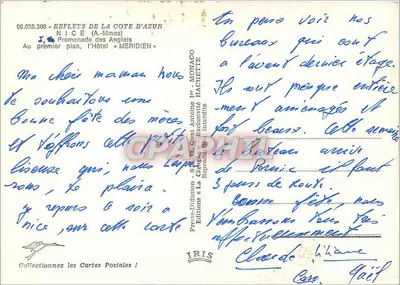 06.088.306 - REFLETS DE LA COTE D'AZUR
NICE (A.-Mmes)
Promenade des Anglais
Au premier plan, l'Hôtel "MERIDIEN"
Ma chère maman nous
te souhaitons une
bonne fête des mères
et t'offrons cette petite
liseuse qui, nous
sons, te plaira.
Je repars ce soir à
nice, sur cette carte
Collectionnez les Cartes Postales !
Presse-Diffusion - Quai Antoine 1er - MONACO
Editions "La Exclusivité HACHETTE
Reproduction interdite
IRIS
CPARAMA.COM
tu peux voir nos
bureaux qui sont
à l'avant dernier étage.
Ils sont presque entière
ment aménagés et
fort beaux. Cette semaine
le bateau arrive
de il faut
3 jours de route.
bonne fête, nous
t'embrassons tous très
affectueusement
Claude Liliane
Caro Gaël